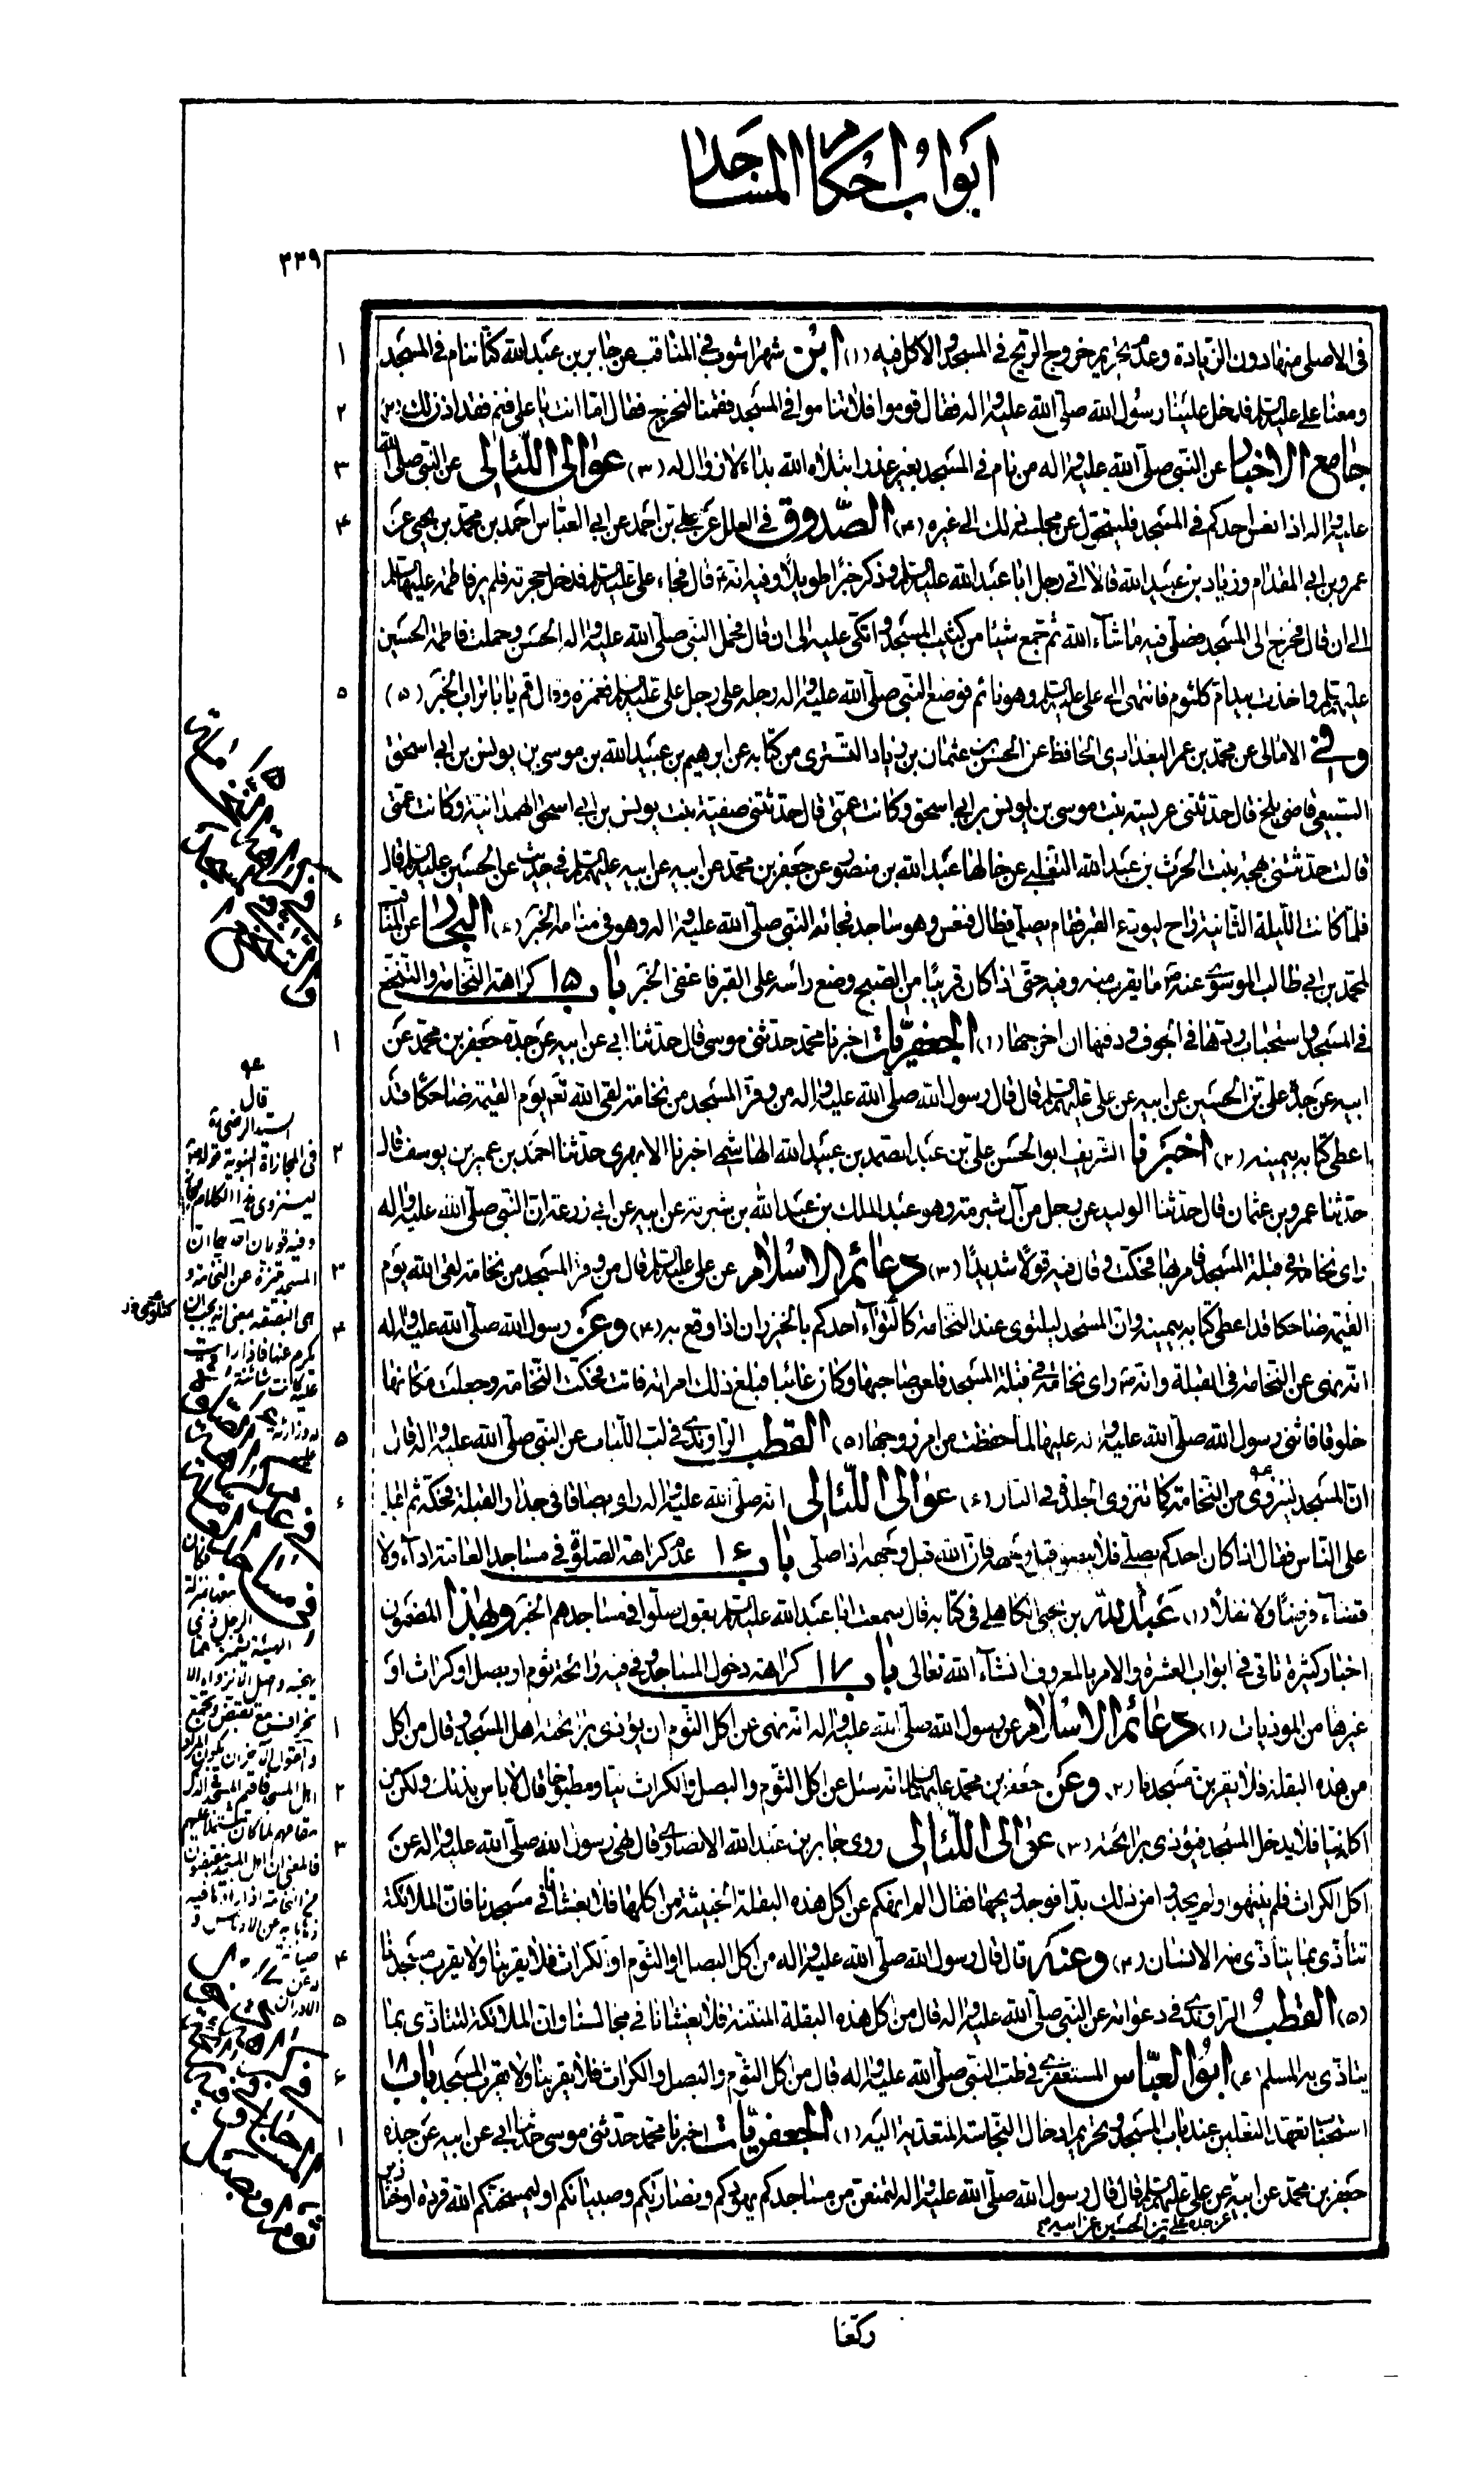 ابواب احكام المساجد
٢٣٩
في الاصلي منها دون الزيادة وعدم تحريم خروج الريح في المسجد والاكل فيه (١) ابن شهراشوب في المناقب عن جابر بن عبد الله كنا ننام في المسجد
ومعنا علي عليه السلم فدخل علينا رسول الله صلى الله عليه واله فقال قوموا فلا تناموا في المسجد فقمنا لنخرج فقال اما انت يا علي فنم فقد اذن لك (٢)
جامع الاخبار عن النبي صلى الله عليه واله من نام في المسجد بغير عذر ابتلاه الله بداء لا زوال له (٣) عوالي اللئالي عن النبي صلى الله
عليه واله اذا نعس احدكم في المسجد فليتحول عن مجلسه ذلك الى غيره (٤) الصدوق في العلل عن علي بن احمد عن ابي العباس احمد بن محمد بن يحيى عن
عمرو بن ابي المقدام وزياد بن عبيد الله قالا اتى رجل ابا عبد الله عليه السلم وذكر خبرا طويلا وفيه انه قال فجاء علي عليه السلم فدخل حجرته فلم ير فاطمة عليها السلم
الى ان قال فخرج الى المسجد فصلى فيه ما شاء الله ثم جمع شيئا من كثيب المسجد واتكى عليه الى ان قال فحمل النبي صلى الله عليه واله الحسن وحملت فاطمة الحسين
عليهم السلم واخذت بيد ام كلثوم فانتهى الى علي عليه السلم وهو نائم فوضع النبي صلى الله عليه واله رجله على رجل علي عليه السلم فغمزه وقال قم يا با تراب الخبر (٥)
وفي الامالي عن محمد بن عمر البغدادي الحافظ عن الحسن بن عثمان بن زياد التستري من كتابه عن ابرهيم بن عبيد الله بن موسى بن يونس بن ابي اسحق
السبيعي قاضي بلخ قال حدثتني عريسة بنت موسى بن يونس بن ابي اسحق وكانت عمتي قال حدثتني صفية بنت يونس بن ابي اسحق الهمدانية وكانت عمتي
قالت حدثتني بهجة بنت الحرث بن عبد الله التغلبي عن خالها عبد الله بن منصور عن جعفر بن محمد عن ابيه عن ابيه عليهم السلم في حديث عن الحسين عليه السلم قال
فلما كانت الليلة الثانية راح ليودع القبر فقام يصلي فطال فنعس وهو ساجد فجائه النبي صلى الله عليه واله وهو في منامه الخبر (٦) البحار عن المناقب
لمحمد بن ابي طالب الموسوي عنه ما يقرب منه وفيه حتى اذا كان قريبا من الصبح وضع راسه على القبر فاغفى الخبر باب ١٥ كراهة النخامة والتنخع
في المسجد واستحباب ردها في الجوف ودفنها ان اخرجها (١) الجعفريات اخبرنا محمد حدثني موسى قال حدثنا ابي عن ابيه عن جده جعفر بن محمد عن
ابيه عن جده علي بن الحسين عن ابيه عن علي عليهم السلم قال قال رسول الله صلى الله عليه واله من وقر المسجد من نخامة لقى الله تعم يوم القيمة ضاحكا قد
اعطي كتابه بيمينه (٢) اخبرنا الشريف ابو الحسن علي بن عبد الصمد بن عبيد الله الهاشمي اخبرنا الابهري حدثنا احمد بن عمير بن يوسف قال
حدثنا عمرو بن عثمان قال حدثنا الوليد عن رجل من آل شبرمة وهو عبد الملك بن عبد الله بن شبرمة عن ابيه عن ابي زرعة ان النبي صلى الله عليه واله
راى نخامة في قبلة المسجد فامر بها فحكت وقال فيه قولا شديدا (٣) دعائم الاسلام عن علي عليه السلم قال من وقر المسجد من نخامة لقى الله يوم
القيمة ضاحكا قد اعطي كتابه بيمينه وان المسجد ليلتوي عند النخامة كالتواء احدكم بالخيزران اذا وقع به (٤) وعن رسول الله صلى الله عليه واله
انه نهى عن النخامة في القبلة وانه راى نخامة في قبلة المسجد فلعن صاحبها وكان غائبا فبلغ ذلك امراته فاتت فحكت النخامة وجعلت مكانها
خلوقا فاثنى رسول الله صلى الله عليه واله عليها لما حفظت من امر زوجها (٥) القطب الراوندي في لب اللباب عن النبي صلى الله عليه واله قال
ان المسجد لينزوي من النخامة كما تنزوي الجلدة في النار (٦) عوالي اللئالي انه صلى الله عليه واله راى بصاقا في جدار القبلة فحكه ثم اقبل
على الناس فقال اذا كان احدكم يصلي فلا يبصق قبل وجهه فان الله قبل وجهه اذا صلى باب ١٦ عدم كراهة الصلوة في مساجد العامة اداء ولا
قضاء فرضا ولا نفلا (١) عبد الله بن يحيى الكاهلي في كتابه قال سمعت ابا عبد الله عليه السلم يقول صلوا في مساجدهم الخبر وبهذا المضمون
اخبار كثيرة تاتي في ابواب العشرة والامر بالمعروف انشاء الله تعالى باب ١٧ كراهة دخول المساجد وفي فيه رائحة ثوم او بصل او كراث او
غيرها من الموذيات (١) دعائم الاسلام عن رسول الله صلى الله عليه واله انه نهى عن اكل الثوم ان يؤذي برائحته اهل المسجد وقال من اكل
من هذه البقلة فلا يقربن مسجدنا (٢) وعن جعفر بن محمد عليهما السلم انه سئل عن اكل الثوم والبصل والكراث نيا ومطبوخا قال لا باس بذلك ولكن من
اكله نيا فلا يدخل المسجد فيؤذي برائحته (٣) عوالي اللئالي روى جابر بن عبد الله الانصاري قال نهى رسول الله صلى الله عليه واله عن
اكل الكراث فلم ينتهوا ولم يجدوا من ذلك بدا فوجد ريحها فقال الم انهكم عن اكل هذه البقلة الخبيثة من اكلها فلا يغشانا في مسجدنا فان الملائكة
تتأذى بما يتأذى منه الانسان (٤) وعنه قال قال رسول الله صلى الله عليه واله من اكل البصل والثوم او الكراث فلا يقربنا ولا يقرب مسجدنا
(٥) القطب الراوندي في دعواته عن النبي صلى الله عليه واله قال من اكل هذه البقلة المنتنة فلا يغشانا في مجالسنا وان الملائكة لتتاذى بما
يتاذى به المسلم (٦) ابو العباس المستغفري في طب النبي صلى الله عليه واله قال من اكل الثوم والبصل والكراث فلا يقربنا ولا يقرب المسجد باب ١٨
استحباب تعهد النعلين عند باب المسجد وتحريم ادخال النجاسة المتعدية اليه (١) الجعفريات اخبرنا محمد حدثني موسى حدثنا ابي عن ابيه عن جده
جعفر بن محمد عن ابيه عن علي عليهم السلم قال قال رسول الله صلى الله عليه واله لتمنعن من مساجدكم يهودكم ونصاراكم وصبيانكم او ليمسخنكم الله قردة او خنازير
عن جده علي بن الحسين عن ابيه
ركعا
قال
السيد الرضي
في المجازات النبوية